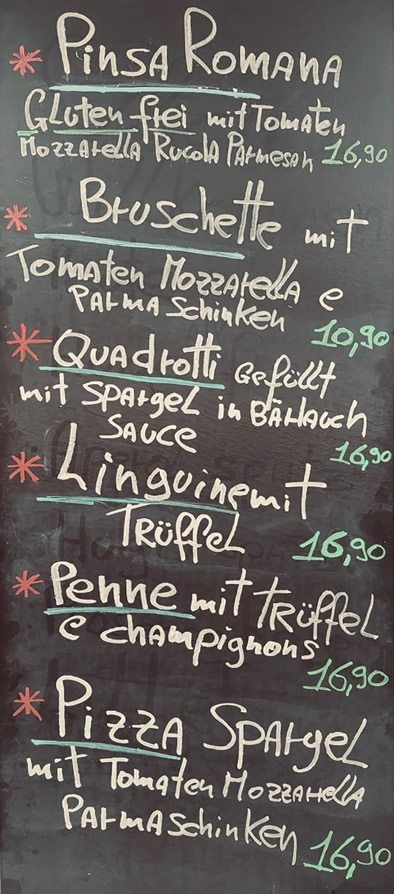 * Pinsa Romana
Gluten frei mit Tomaten
Mozzarella Rucola Parmesan 16,90
* Bruschette mit
Tomaten Mozzarella e
Parma Schinken
10,90
* Quadrotti Gefüllt
mit Spargel in Bärlauch
Sauce
16,90
* Linguine mit
Trüffel 16,90
* Penne mit Trüffel
e champignons
16,90
* Pizza Spargel
mit Tomaten Mozzarella
Parma Schinken 16,90